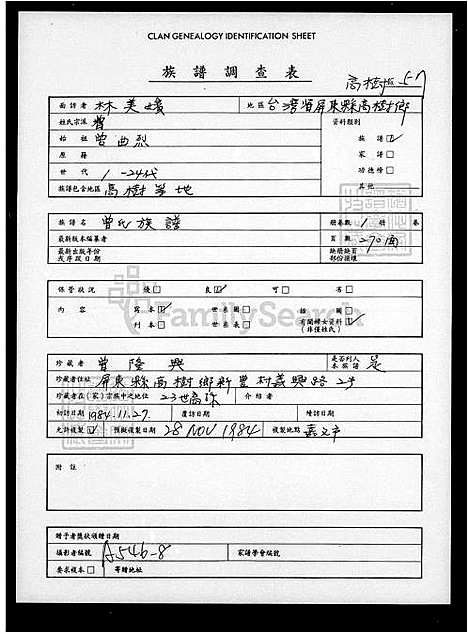 CLAN GENEALOGY IDENTIFICATION SHEET
族譜調查表
高樹 57
面譜者 林美 地區 台灣省屏東縣高樹鄉
姓氏宗派 曾 資料類別
始祖 曾曲烈 族譜☑
原籍 家譜□
世代 1-24代 功德榜□
族譜包含地區 高樹等地 其他
族譜名 曾氏族譜 冊卷數 1 冊 卷
最新版本編纂者 頁數 270面
最新出版年份 缺冊缺頁
或序跋日期 部份損壞
保管狀況 優□ 良☑ 可□ 劣□
內容 寫本☑ 世系圖□ 插圖□
刊本□ 世系表□ 有關婦女資料☑
(非僅姓氏)
FamilySearch
珍藏者 曾隆興 是否列入本族譜 是
珍藏者住址 屏東縣高樹鄉新豐村義興路2号
珍藏者在(家)宗族中之地位 23世裔孫 介紹者
初訪日期 1984.11.27. 覆訪日期 續訪日期
允許複製☑ 預擬複製日期 28 NOV 1984 複製地點 嘉文
附註
贈予者獎狀頒贈日期
攝影者編號 A546-8 家譜學會編號
要求複本□ 寄贈地址